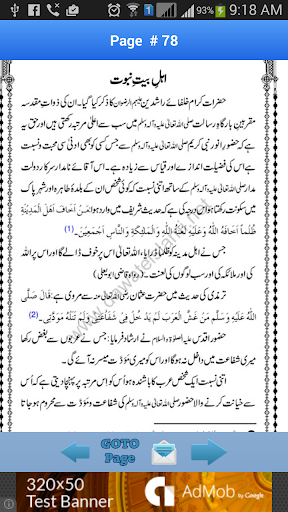 93% 9:18 AM
Page # 78
اہلِ بیتِ نبوت
حضرات کرام خلفائے راشدین علیہم الرضوان کا ذکر کیا گیا۔ ان کی ذوات مقدسہ
مقربینِ بارگاہ رسالت صلی اللہ تعالیٰ علیہ وآلہٖ وسلم میں سب سے اعلیٰ مرتبہ رکھتی ہیں اور حق یہ
ہے کہ حضور انور نبی کریم صلی اللہ تعالیٰ علیہ وآلہٖ وسلم سے جس کسی کو بھی ادنیٰ سی محبت و نسبت
ہے اس کی فضیلت اندازے اور قیاس سے زیادہ ہے۔ اس آقائے نامدار سرکار دولت
مدار صلی اللہ تعالیٰ علیہ وآلہٖ وسلم کے ساتھ اتنی نسبت کہ کوئی شخص ان کے بلدہ طاہرہ اور شہر پاک
میں سکونت رکھتا ہو اس درجہ کی ہے کہ حدیث شریف میں وارد ہوا مَنْ اَخَافَ اَهْلَ الْمَدِيْنَةِ
ظُلْمًا اَخَافَهُ اللّٰهُ وَعَلَيْهِ لَعْنَةُ اللّٰهِ وَالْمَلٰٓئِكَةِ وَالنَّاسِ اَجْمَعِيْنَ۔ (1)
جس نے اہل مدینہ کو ظلماً ڈرایا اللہ تعالیٰ اس پر خوف ڈالے گا اور اس پر اللہ
کی اور ملائکہ کی اور سب لوگوں کی لعنت۔ (رواہ قاضی ابو یعلی)
ترمذی کی حدیث میں حضرت عثمان رضی اللہ تعالیٰ عنہ سے مروی ہے: قَالَ صَلَّى
اللّٰهُ عَلَيْهِ وَسَلَّمَ مَنْ غَشَّ الْعَرَبَ لَمْ يَدْخُلْ فِىْ شَفَاعَتِىْ وَلَمْ تَنَلْهُ مَوَدَّتِىْ۔ (2)
حضور اقدس علیہ الصلوٰۃ والسلام نے ارشاد فرمایا: جس نے عربوں سے بغض رکھا
میری شفاعت میں داخل نہ ہوگا اور اس کو میری مودّت میسر نہ آئے گی۔
اتنی نسبت ایک شخص عرب کا باشندہ ہو اس کو اس مرتبہ پر پہنچا دیتی ہے کہ اُس
سے خیانت کرنے والا حضور صلی اللہ تعالیٰ علیہ وآلہٖ وسلم کی شفاعت و مودّت سے محروم ہو جاتا
GOTO
Page
320×50
Test Banner
AdMob by Google